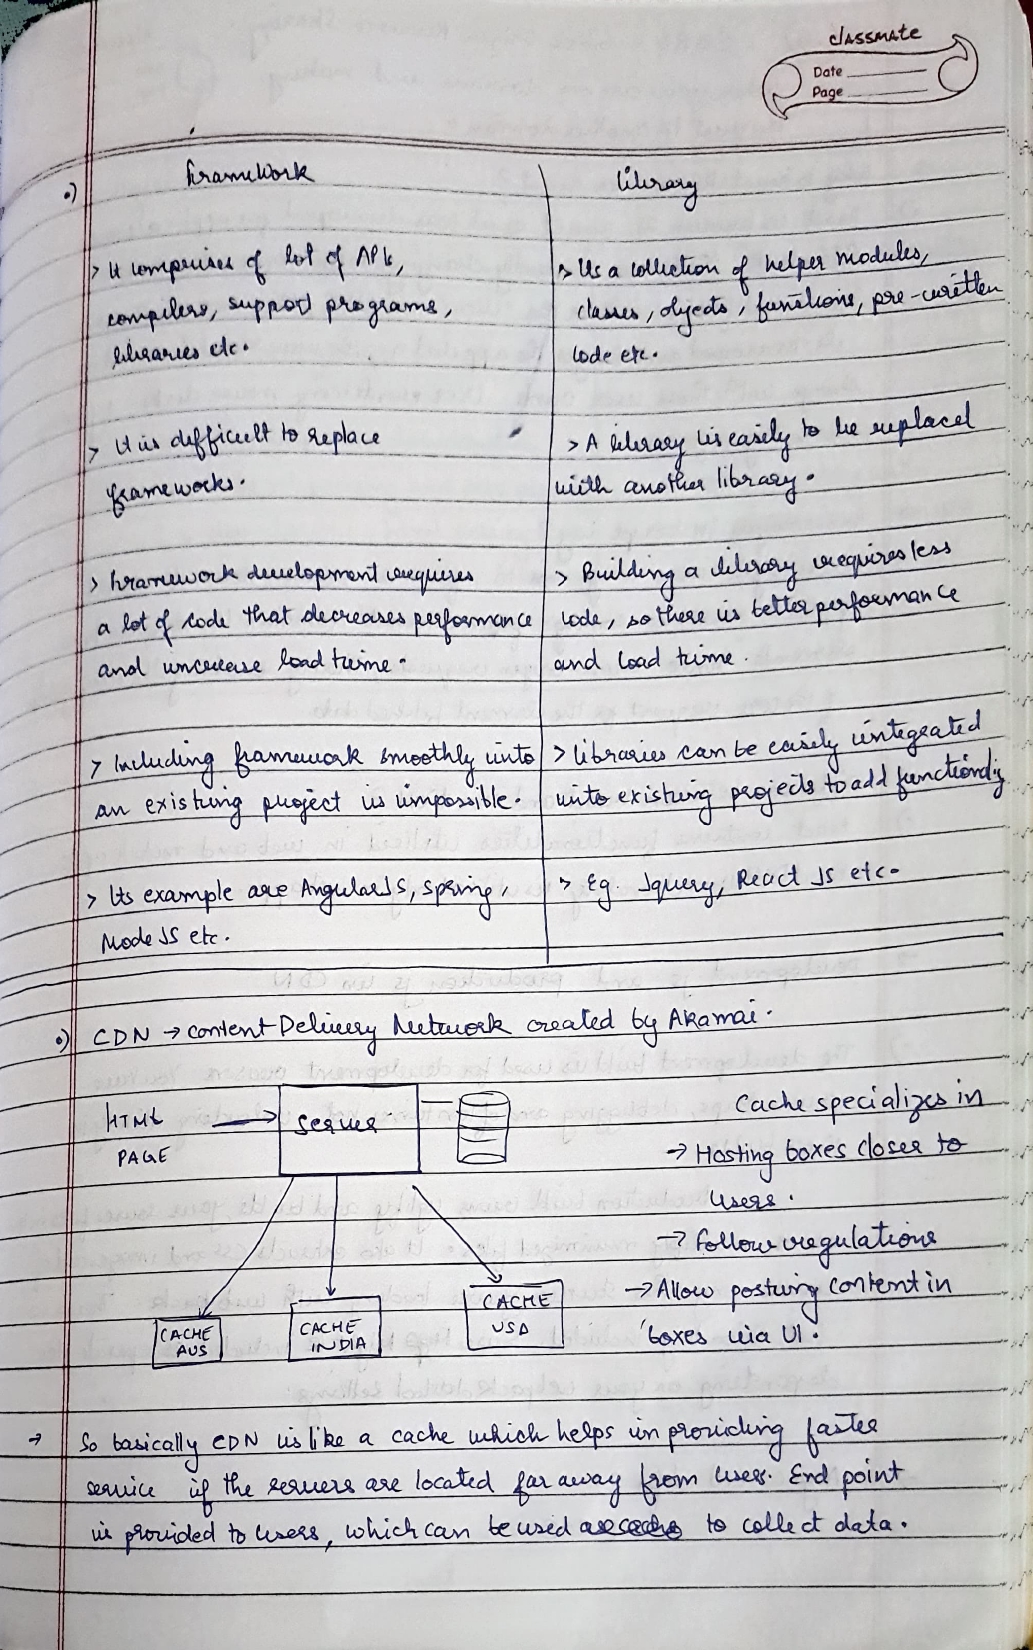 classmate
Date
Page
•)
Framework
Library
> It comprises of lot of APIs,
compilers, support programs,
libraries etc.
> Its a collection of helper modules,
classes, objects, functions, pre-written
code etc.
> It is difficult to replace
frameworks.
> A library is easily to be replaced
with another library.
> Framework development requires
a lot of code that decreases performance
and increase load time.
> Building a library requires less
code, so there is better performance
and load time.
> Including framework smoothly into
an existing project is impossible.
> libraries can be easily integrated
into existing projects to add
> Its example are AngularJS, spring,
Node JS etc.
> Eg. Jquery, React JS etc.
•) CDN → content Delivery Network created by Akamai.
HTML
PAGE
Server
CACHE
AUS
CACHE
INDIA
CACHE
USA
Cache specializes in
→ Hosting boxes closer to
users.
→ Follow regulations
→ Allow posting content in
boxes via UI.
→ So basically CDN is like a cache which helps in providing faster
service if the servers are located far away from user. End point
is provided to users, which can be used to collect data.